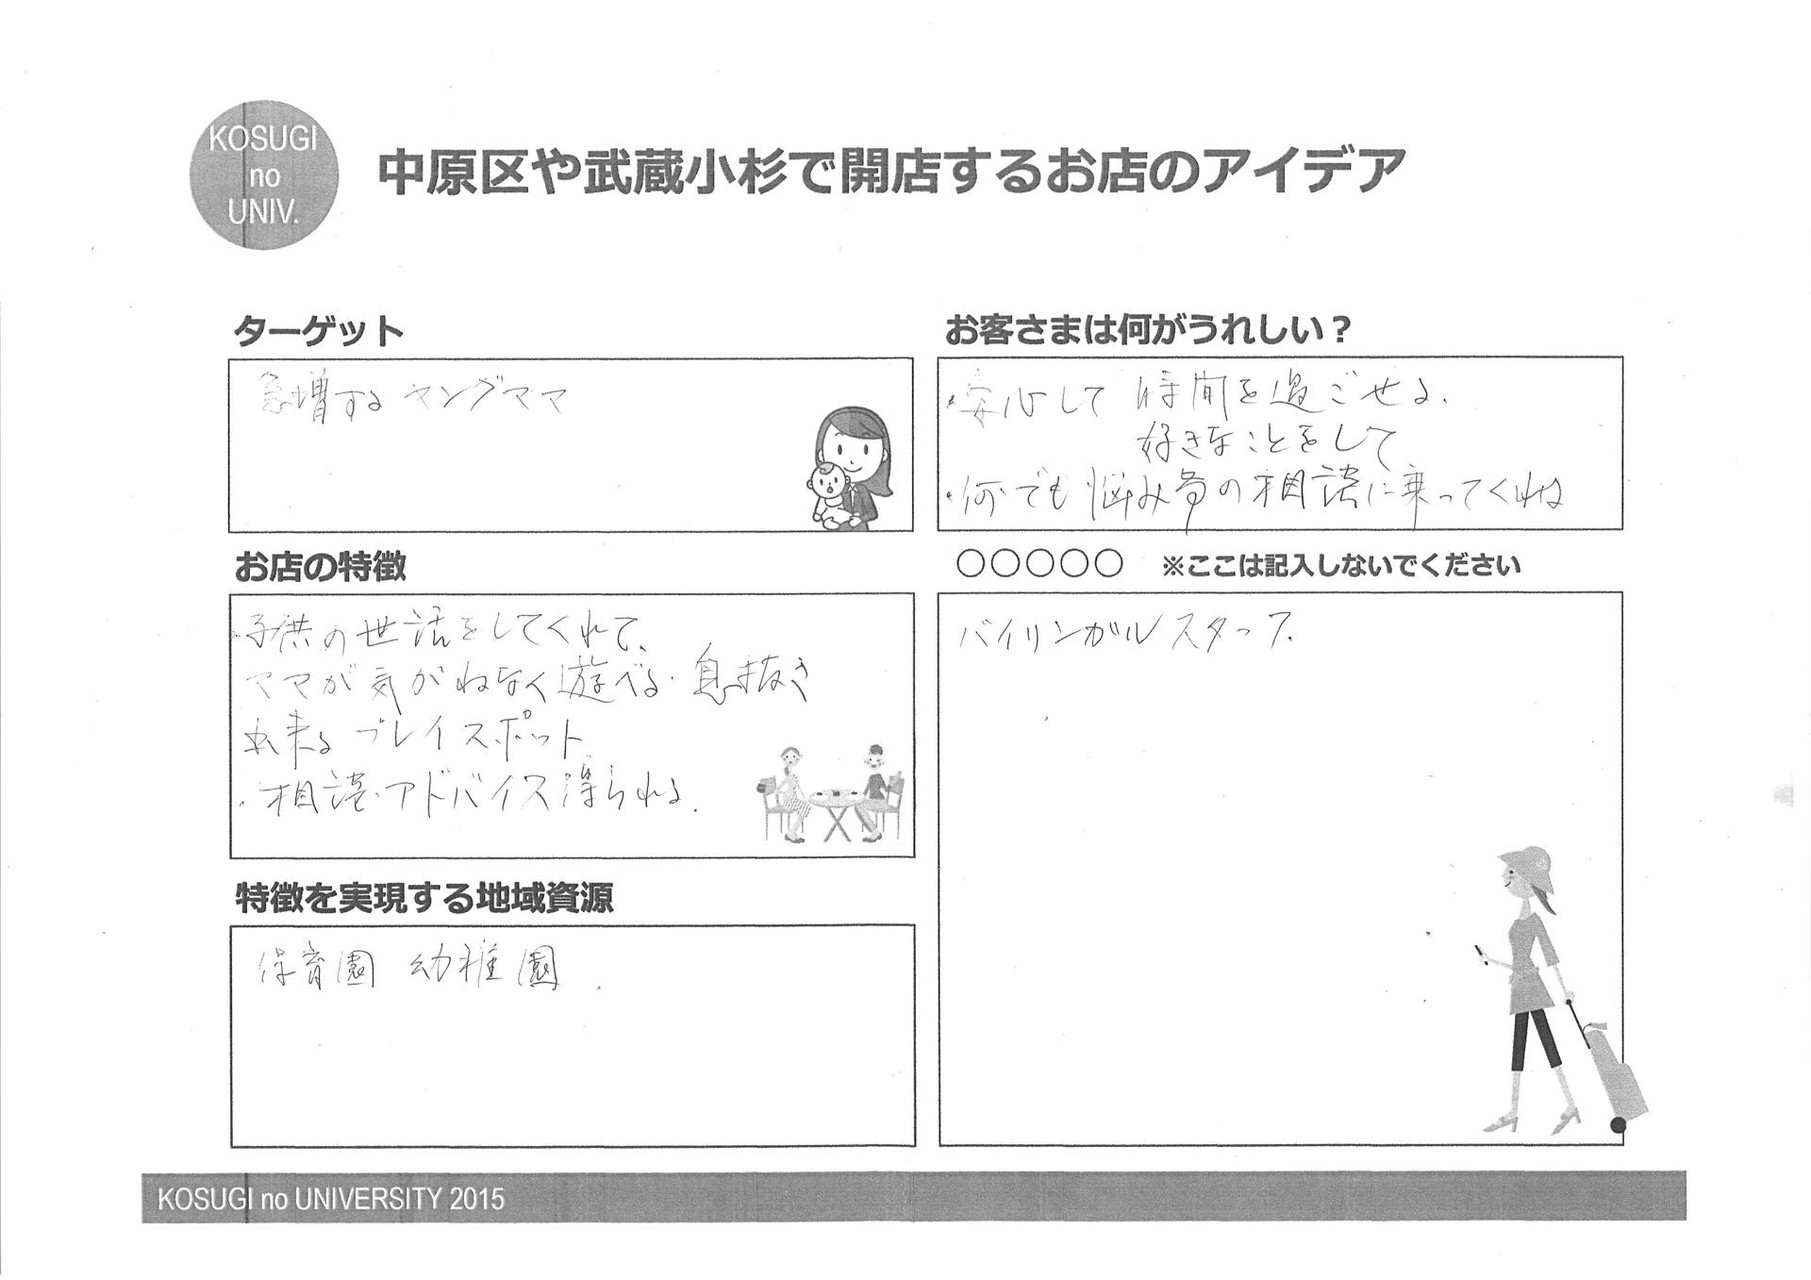 KOSUGI
no
UNIV.
中原区や武蔵小杉で開店するお店のアイデア
ターゲット
急増するヤングママ
お客さまは何がうれしい？
・安心して 時間を過ごせる.
好きなことをして
・何でも悩み等の相談に乗ってくれる
お店の特徴
・子供の世話をしてくれて、
ママが気がねなく遊べる・息抜き
出来るプレイスポット
・相談・アドバイス得られる.
○○○○○ ※ここは記入しないでください
バイリンガルスタッフ.
特徴を実現する地域資源
保育園 幼稚園.
KOSUGI no UNIVERSITY 2015